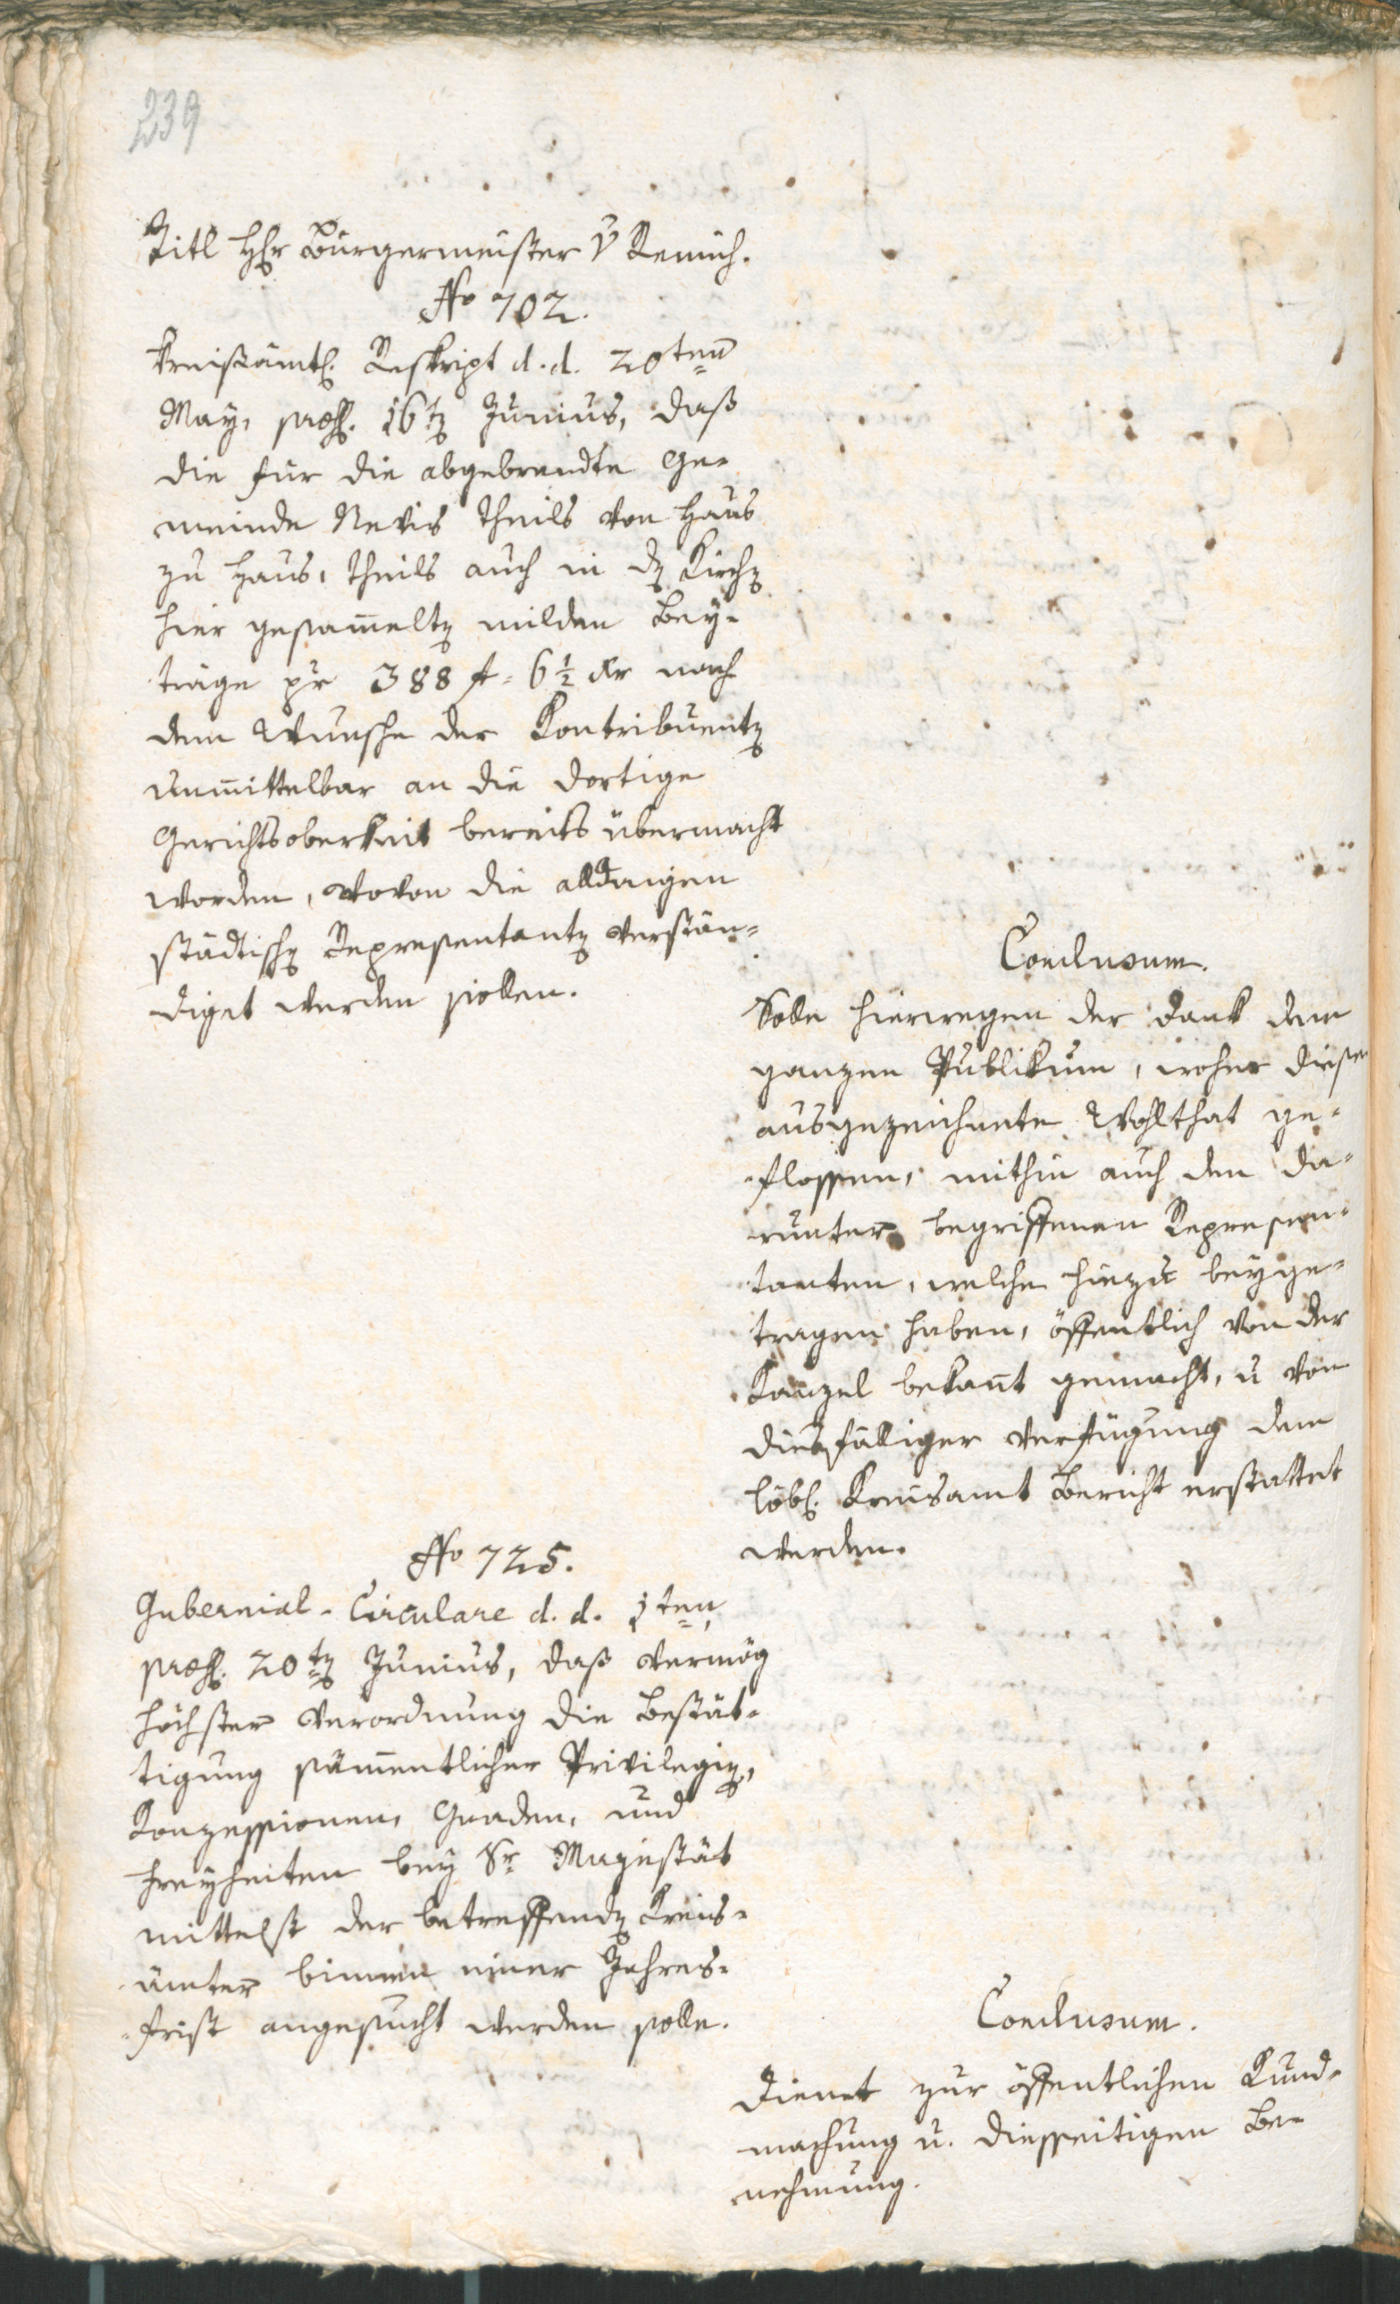 239
Titl Hr Bürgermeister v Remich.
No 702.
Kreißämtl. Reskript d. d. 20ten
May, præs. 16ten Junius, daß
die für die abgebrandte Ge-
meinde Nevis theils von Haus
zu Haus, theils auch in den Kirchen
hier gesam̄elten milden Bey-
träge pr 388 f. 6 1/2 Xr nach
dem Wunsche der Kontribuenten
unmittelbar an die dortige
Gerichtsoberkeit bereits übermacht
worden, wovon die alldasigen
städtischen Repräsentanten verstän-
diget werden sollen.
Conclusum.
Solle hierwegen der Dank dem
ganzen Publikum, woher diese
ausgezeichnete Wohlthat ge-
flossen, mithin auch den da-
runter begriffenen Represen-
tanten, welche hiezu beyge-
tragen haben, öffentlich von der
Kanzel bekan̄t gemacht, u von
diesfälliger Verfügung dem
löbl. Kreisamt Bericht erstattet
werden.
No 725.
Gubernial-Circulare d. d. 1ten
præs. 20ten Junius, daß vermög
höchster Verordnung die Bestät-
tigung säm̄entlicher Privilegien,
Konzessionen, Gnaden, und
Freyheiten bey Sr Magestät
mittelst der betreffenden Kreis-
ämter binnen einer Jahres-
frist angesucht werden solle.
Conclusum.
Dienet zur öffentlichen Kund-
machung u. diesseitigen Be-
nehmung.